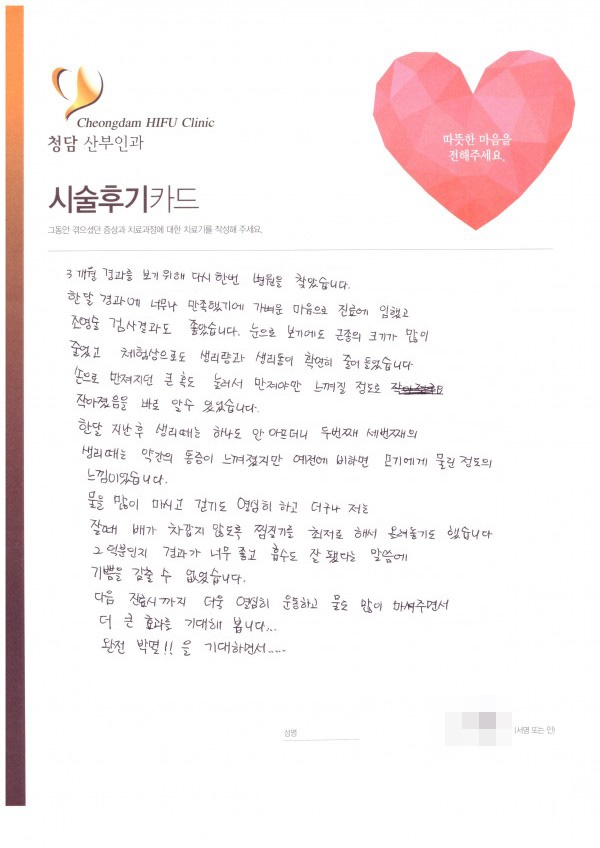 Cheongdam HIFU Clinic
청담 산부인과
따뜻한 마음을
전해주세요.
시술후기카드
그동안 겪으셨던 증상과 치료과정에 대한 치료기를 작성해 주세요.
3개월 경과를 보기위해 다시한번 병원을 찾았습니다.
한달 경과에 너무나 만족했기에 가벼운 마음으로 진료에 임했고
조영술 검사결과도 좋았습니다. 눈으로 보기에도 근종의 크기가 많이
줄었고 체험상으로도 생리량과 생리통이 확연히 줄어들었습니다
손으로 만져지던 큰 혹도 눌러서 만져야만 느껴질 정도로
작아졌음을 바로 알수 있었습니다.
한달 지난후 생리때는 하나도 안아프더니 두번째 세번째의
생리때는 약간의 통증이 느껴졌지만 예전에 비하면 모기에게 물린정도의
느낌이었습니다.
물을 많이 마시고 걷기도 열심히 하고 더구나 저는
잘때 배가 차갑지 않도록 찜질기를 최저로 해서 올려놓기도 했습니다
그 덕분인지 경과가 너무 좋고 흡수도 잘 됐다는 말씀에
기쁨을 감출 수 없었습니다.
다음 진료시까지 더욱 열심히 운동하고 물도 많이 마셔주면서
더 큰 효과를 기대해 봅니다...
완전 박멸!! 을 기대하면서.....
성명
(서명 또는 인)